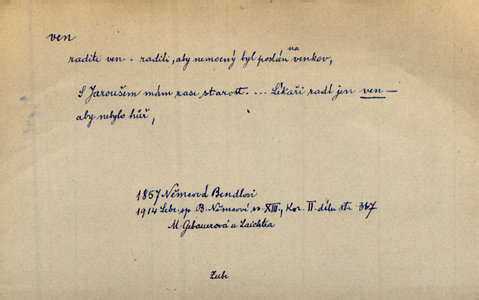 ven
raditi ven = radili, aby nemocný byl poslán na venkov,
S Jaroušem mám zase starost. ... Lékaři radí jen ven —
aby nebylo hůř,
1857 Němcová Bendlovi
1914 Sebr. sp. B. Němcové sv. XIII., Kor. II. dílu str. 367
M. Gebauerová u Laichtra
Zub.